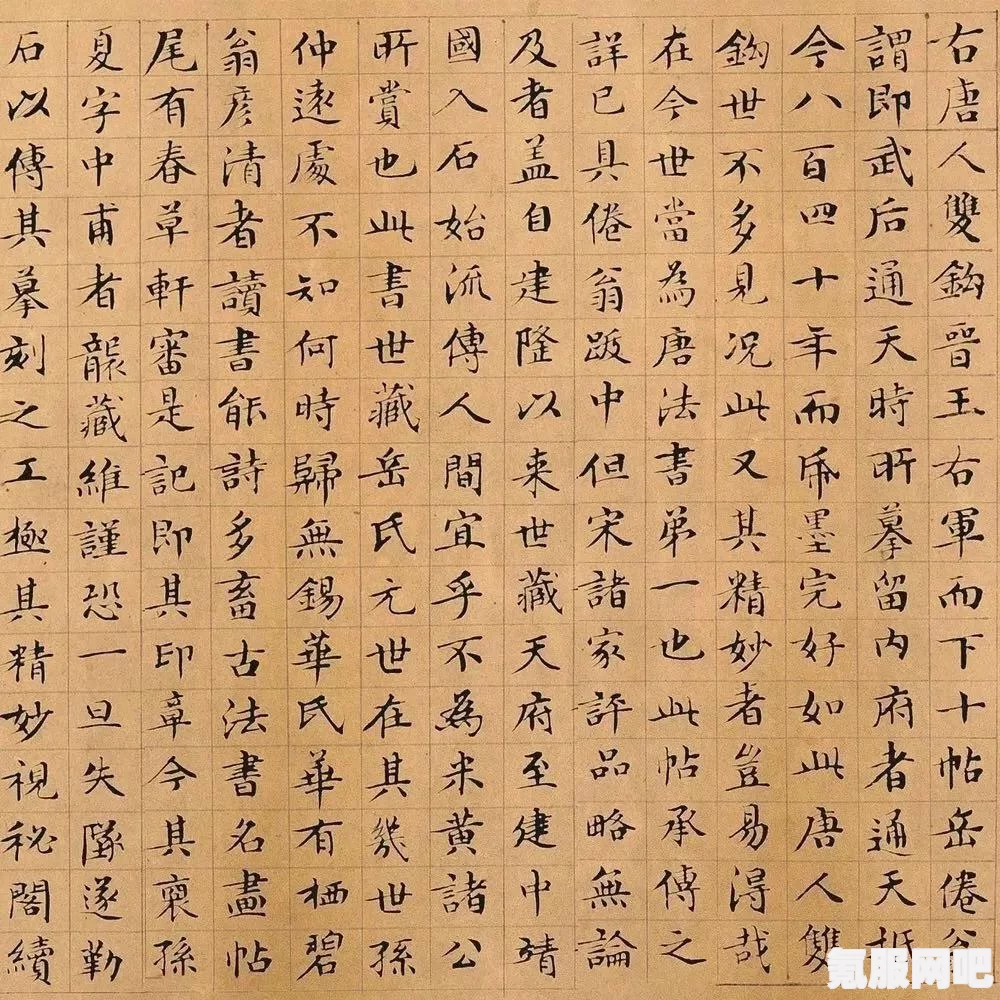 右唐人雙鈎晉王右軍而下十帖岳倦翁
謂即武后通天時所摹留内府者通天抵
今八百四十年而帋墨完好如此唐人雙
鈎世不多見况此又其精妙者豈易得哉
在今世當為唐法書弟一也此帖承傳之
詳已具倦翁跋中但宋諸家評品略無論
及者盖自建隆以来世藏天府至建中靖
國入石始流傳人間宜乎不為米黄諸公
所賞也此書世藏岳氏元世在其幾世孫
仲遠處不知何時歸無錫華氏華有栖碧
翁彦清者讀書能詩多畜古法書名畫帖
尾有春草軒審是記即其印章今其裔孫
夏字中甫者襲藏維謹恐一旦失墜遂勒
石以傳其摹刻之工極其精妙視秘閣續
氪服网吧